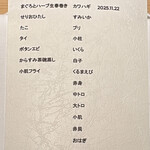 まぐろとハーブ生春巻き
せりおひたし
たこ
タイ
ボタンエビ
からすみ茶碗蒸し
小肌フライ
カワハギ
すみいか
ブリ
小柱
いくら
白子
くるまえび
赤身
中トロ
大トロ
小肌
赤貝
おはぎ
2025.11.22